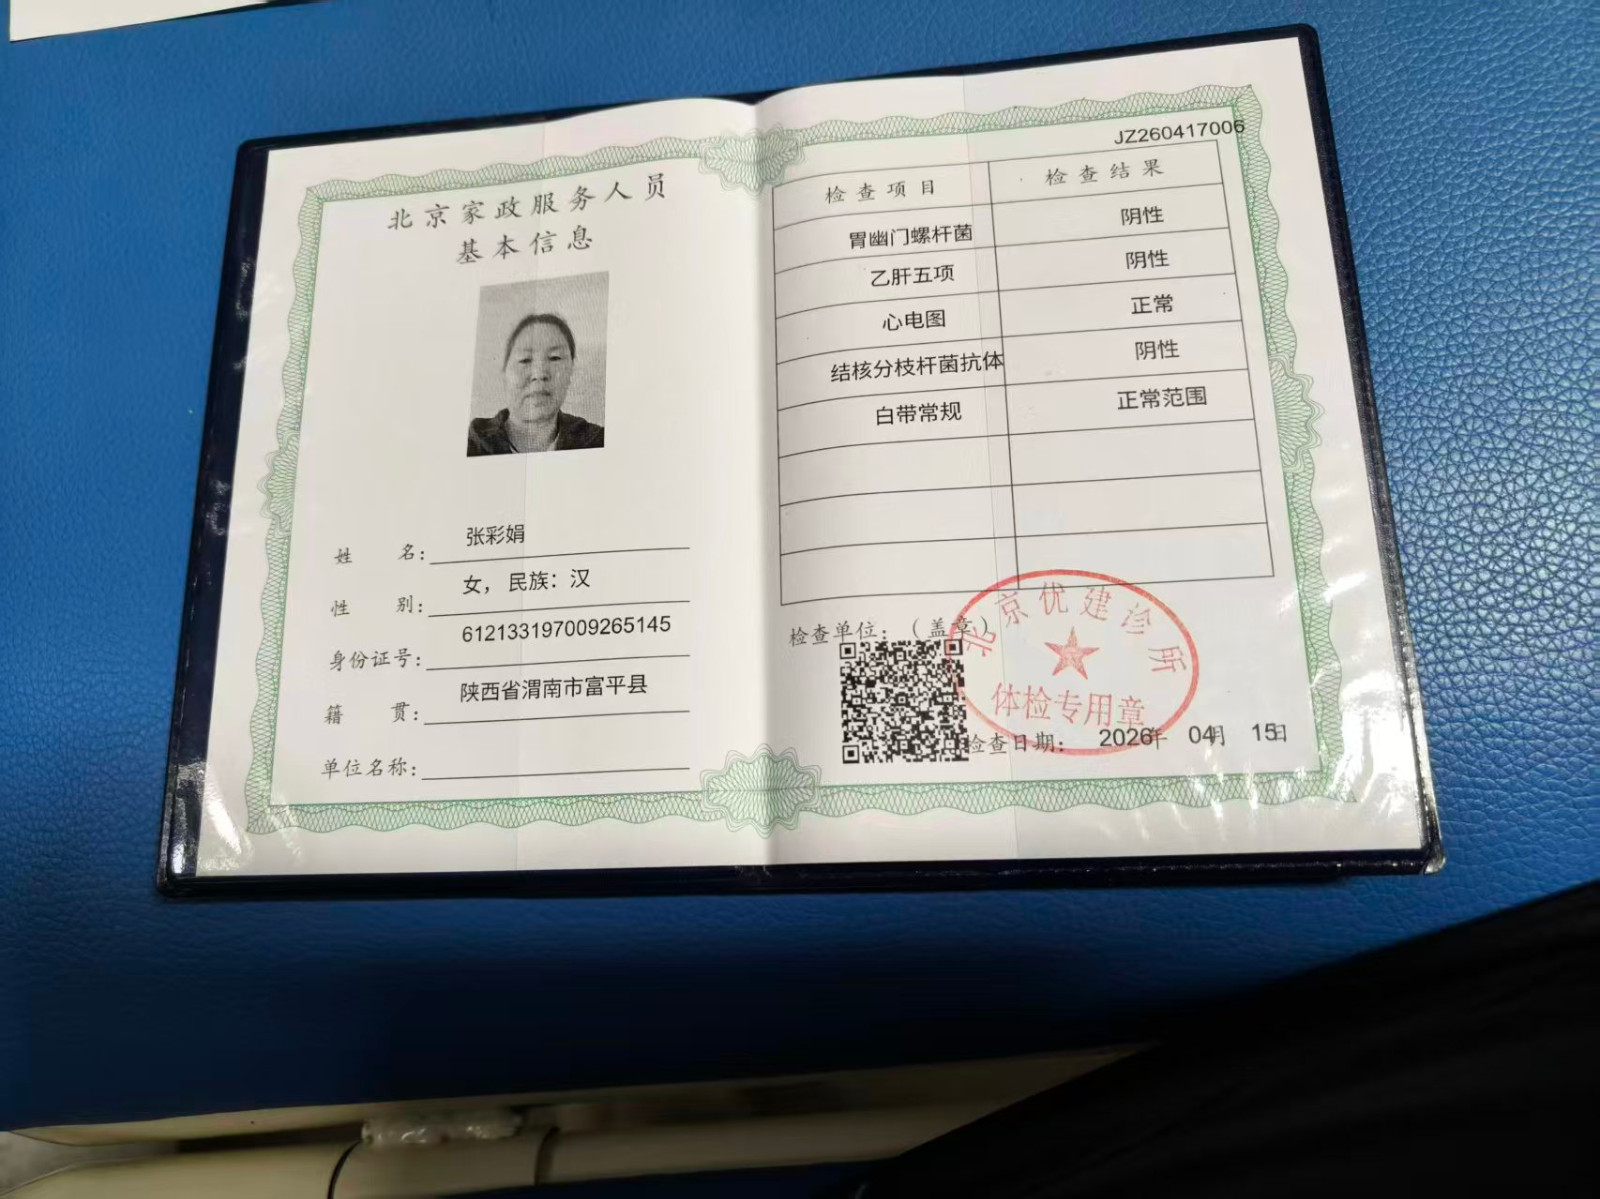 北京家政服务人员
基本信息
姓 名： 张彩娟
性 别： 女，民族：汉
身份证号： 612133197009265145
籍 贯： 陕西省渭南市富平县
单位名称：
JZ260417006
检查项目 检查结果
胃幽门螺杆菌 阴性
乙肝五项 阴性
心电图 正常
结核分枝杆菌抗体 阴性
白带常规 正常范围
检查单位：（盖章）
北京优建诊所
体检专用章
检查日期： 2026年 04月 15日